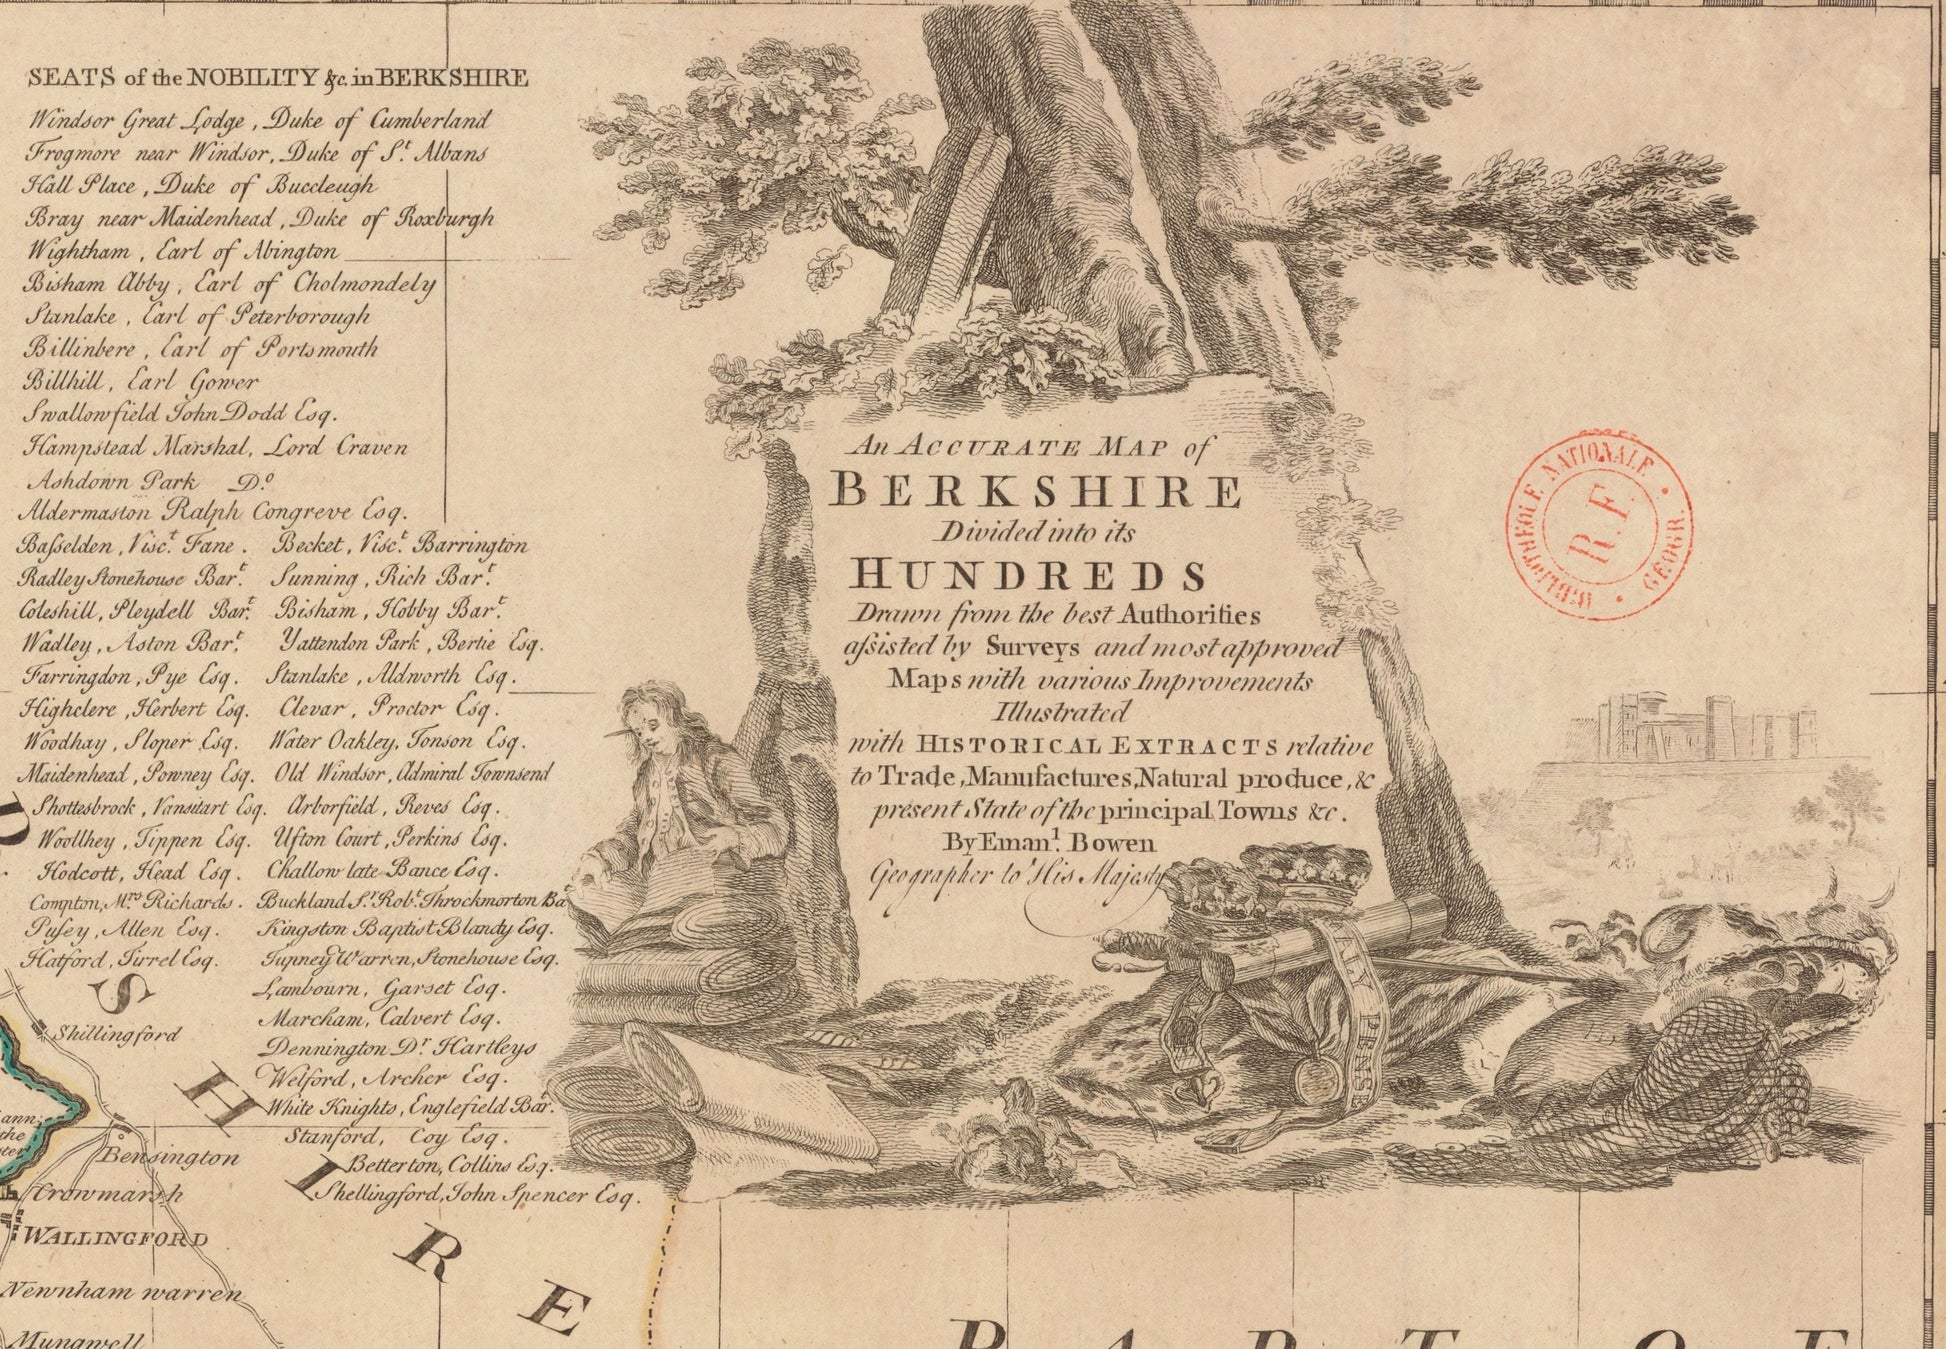 SEATS of the NOBILITY &c. in BERKSHIRE
Windsor Great Lodge, Duke of Cumberland
Frogmore near Windsor, Duke of St. Albans
Hall Place, Duke of Buccleugh
Bray near Maidenhead, Duke of Roxburgh
Wightham, Earl of Abington
Bisham Abby, Earl of Cholmondely
Stanlake, Earl of Peterborough
Billinbere, Earl of Portsmouth
Billhill, Earl Gower
Swallowfield John Dodd Esq.
Hampstead Marshal, Lord Craven
Ashdown Park Do.
Aldermaston Ralph Congreve Esq.
Baſselden, Visct. Fane.
Radley Stonehouse Bart.
Coleshill, Pleydell Bart.
Wadley, Aston Bart.
Farringdon, Pye Esq.
Highclere, Herbert Esq.
Woodhay, Sloper Esq.
Maidenhead, Powney Esq.
Shottesbrock, Vansittart Esq.
Woollhey, Tippen Esq.
Hodcott, Head Esq.
Compton, Mrs Richards.
Puſey, Allen Esq.
Hatford, Tirrel Esq.
Becket, Visct. Barrington
Sunning, Rich Bart.
Bisham, Hobby Bart.
Yattendon Park, Bertie Esq.
Stanlake, Aldworth Esq.
Clevar, Proctor Esq.
Water Oakley, Tonson Esq.
Old Windsor, Admiral Townsend
Arborfield, Reves Esq.
Ufton Court, Perkins Esq.
Challow late Bance Esq.
Buckland Sr. Robt. Throckmorton Bat
Kingston Baptist Blandy Esq.
Tupney Warren, Stonehouse Esq.
Lambourn, Garset Esq.
Marcham, Calvert Esq.
Dennington Dr. Hartleys
Welford, Archer Esq.
White Knights, Englefield Bart.
Stanford, Coy Esq.
Betterton, Collins Esq.
Shellingford, John Spencer Esq.
An ACCURATE MAP of
BERKSHIRE
Divided into its
HUNDREDS
Drawn from the best Authorities
aſsisted by Surveys and most approved
Maps with various Improvements
Illustrated
with HISTORICAL EXTRACTS relative
to Trade, Manufactures, Natural produce, &
present State of the principal Towns &c.
By Emanl. Bowen
Geographer to His Majesty
BIBLIOTHEQUE NATIONALE
R.F.
GEOGR.
Y PENSE
Shillingford
Bensington
Crowmarsh
WALLINGFORD
Newnham warren
Mungwell
SHIRE
PART OF